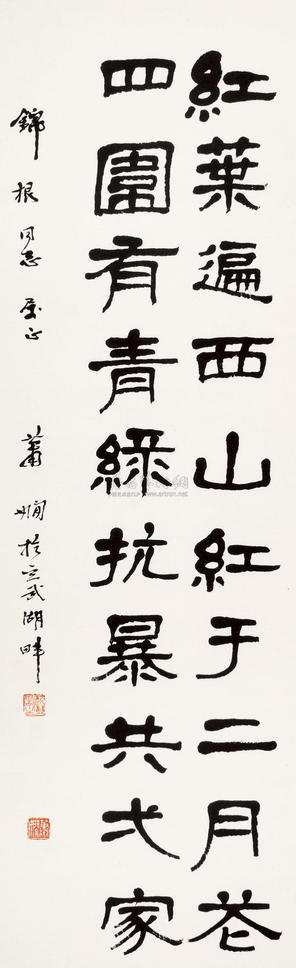 紅葉遍西山紅于二月花
四圍有青綠抗暴共弌家
錦根同志属正 蕭嫻於玄武湖畔